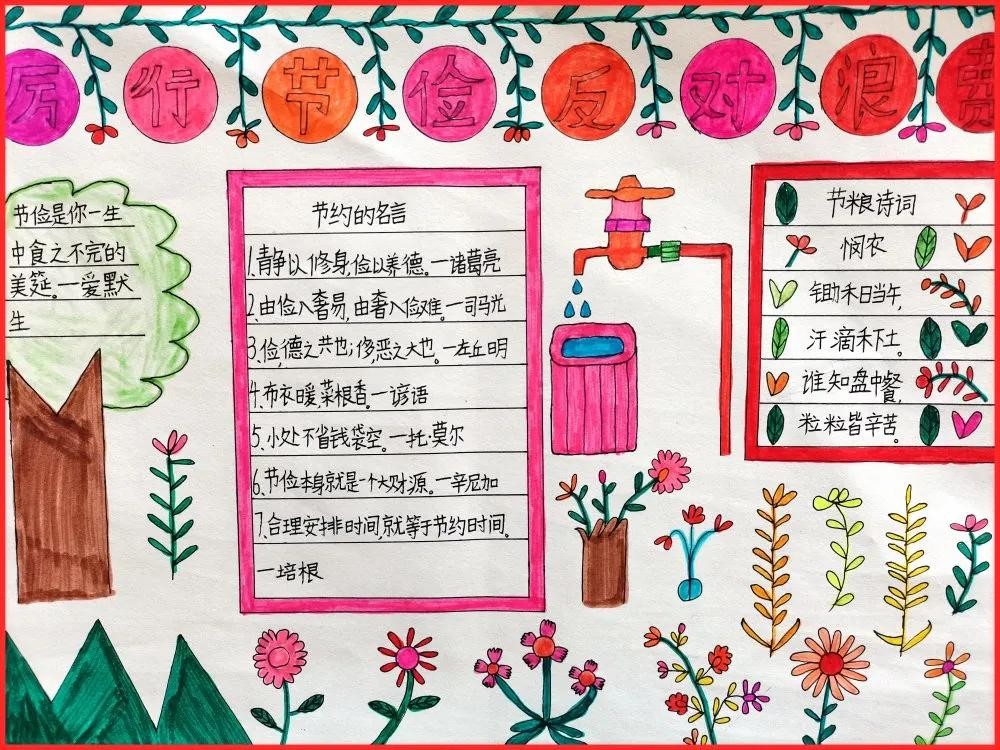 厉行节俭反对浪费
节俭是你一生
中食之不完的
美筵。一爱默
生
节约的名言
1.静以修身,俭以养德。一诸葛亮
2.由俭入奢易,由奢入俭难。一司马光
3.俭,德之共也;侈,恶之大也。一左丘明
4.布衣暖,菜根香。一谚语
5.小处不省钱袋空。一托·莫尔
6.节俭本身就是一个大财源。一辛尼加
7.合理安排时间,就等于节约时间。
一培根
节粮诗词
悯农
锄禾日当午,
汗滴禾下土。
谁知盘中餐,
粒粒皆辛苦。